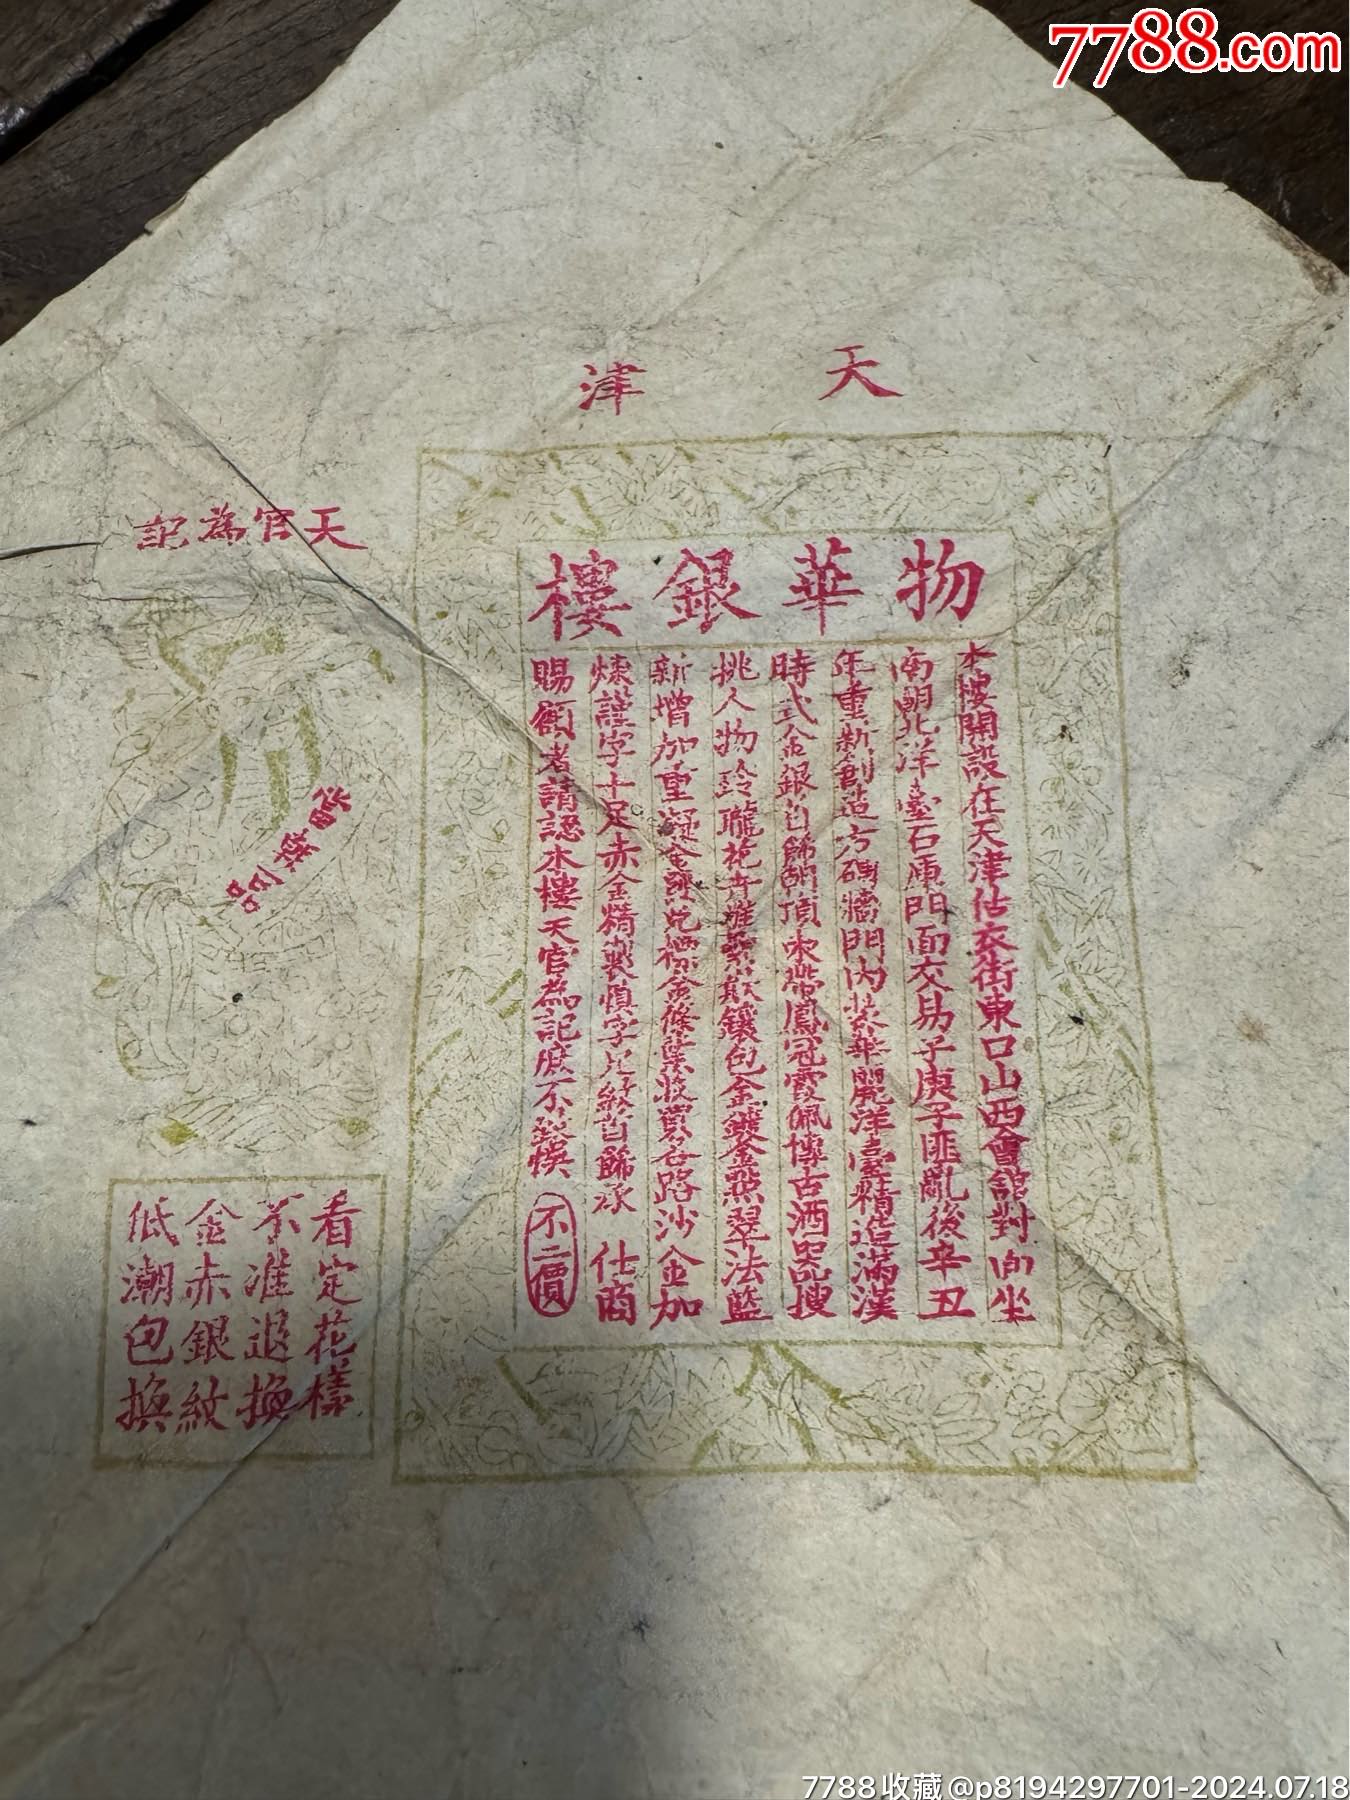 7788.com
天津
物華銀樓
本樓開設在天津估衣街東口山西會舘對面坐
南朝北洋臺石庫門面交易于庚子匪亂後辛丑
年重新創造方磚墻門內裝華麗洋臺精造滿漢
時式金銀首飾朝頂束帶鳳冠霞佩博古酒器搜
挑人物玲瓏花卉雅聚欵鑲包金鍍金點翠法藍
新增加重凝金譯兌標金條葉收買各路沙金加
煉謹字十足赤金精製慎字足紋首飾承 仕商
賜顧者請認本樓天官為記庶不致悞
不二價
天官為記
當朝一品
看定花樣
不准退換
金赤銀紋
低潮包換
7788收藏@p8194297701-2024.07.18